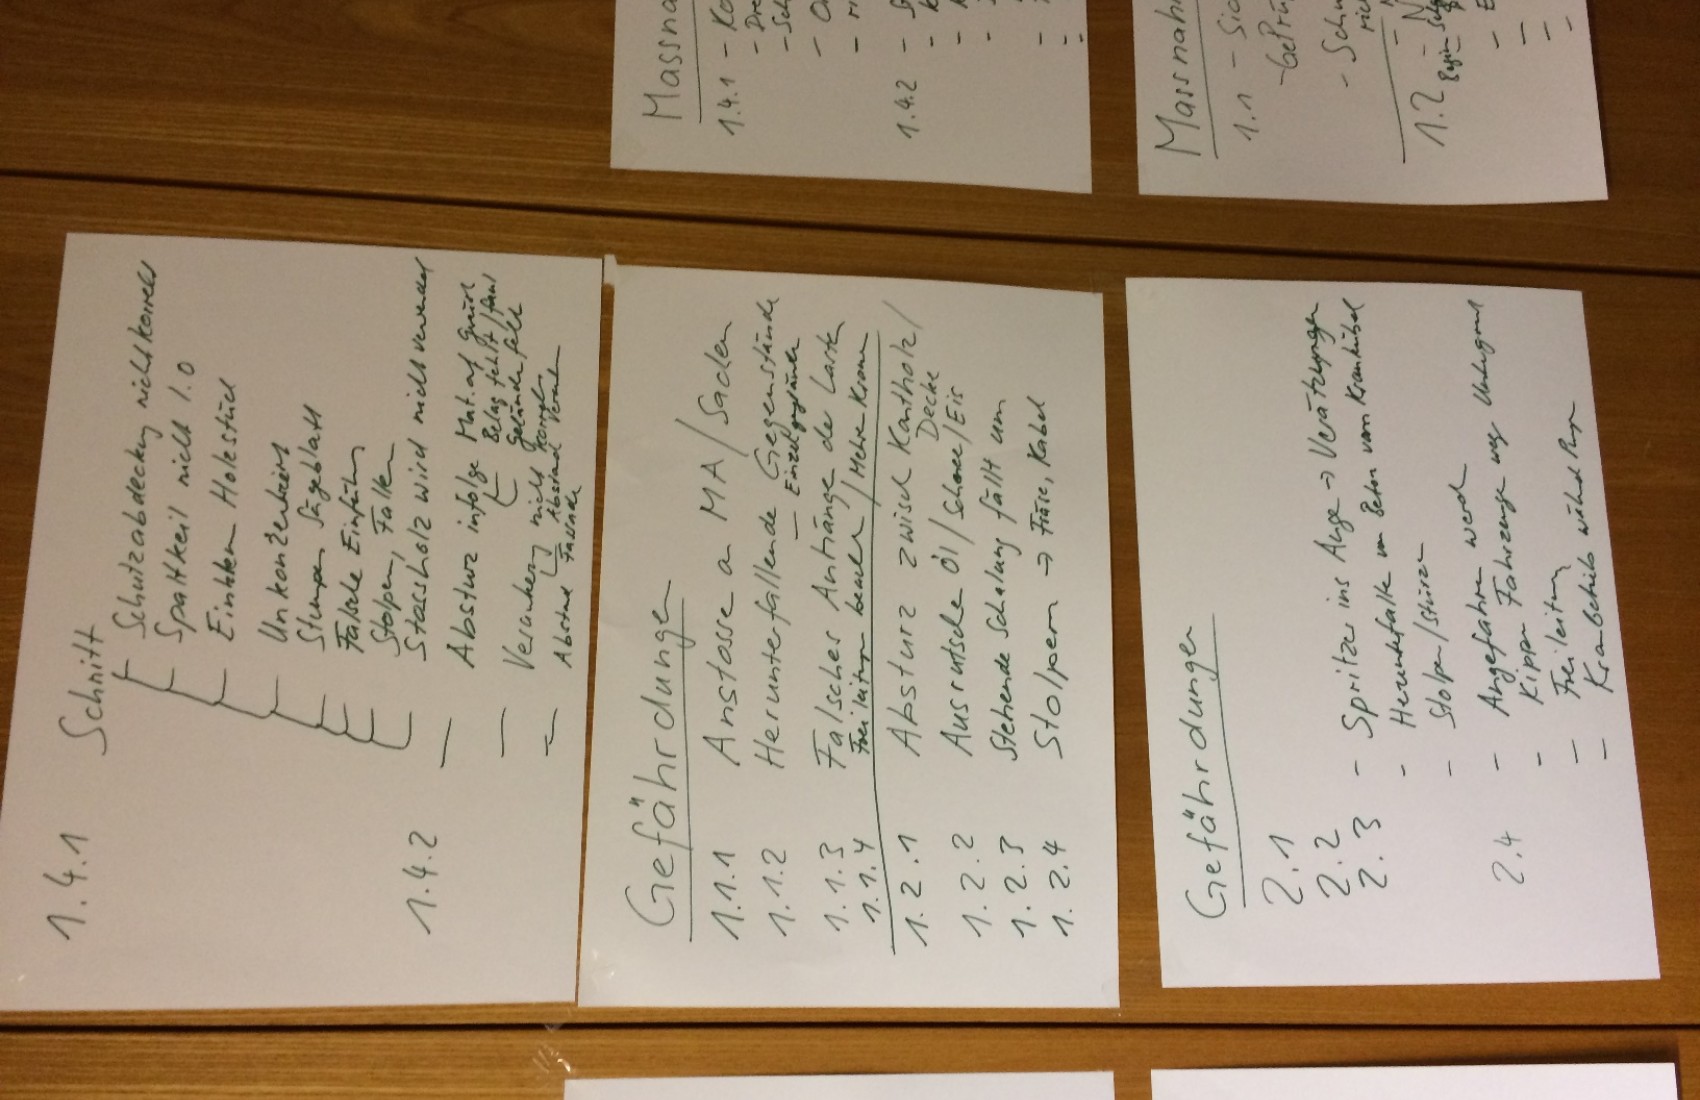 1.4.1 Schnitt
Schutzabdeckung nicht korrekt
Spaltkeil nicht i.O
Einhken Holzstück
Unkonzentriert
Stumpfes Sägeblatt
Falsche Einführung
Stolpern, Fallen
Stossholz wird nicht verwendet
1.4.2 — Absturz infolge Mat. auf Gerüst
Belag fehlt/faul
Geländer fehlt
— Verankerung nicht korrekt
Abstand
— Abstand Fassade
Gefährdungen
1.1.1 Anstosse an MA/Sachen
1.1.2 Herunterfallende Gegenstände
— Einzelgegenstände
1.1.3 Falsches Anhängen der Lasten
1.1.4 Freileitungen beachten / Mehre Krane
1.2.1 Absturz zwisch Kantholz/
Decke
1.2.2 Ausrutschen Öl/Schnee/Eis
1.2.3 Stehende Schalung fällt um
1.2.4 Stolpern → Füsse, Kabel
Gefährdungen
2.1
2.2 - Spritzer ins Auge → Verätzungen
2.3 - Herunterfallen von Beton vom Krankübel
- Stolpern/Stürzen
2.4 - Angefahren werden
- Kippen Fahrzeuge weg Untergrund
- Freileitung
- Kranbetrieb während
Massna
1.4.1 - Ko
- Dre
- Sch
1.4.2 -
Massnah
1.1 - Sic
- Geprü
- Schu
1.2